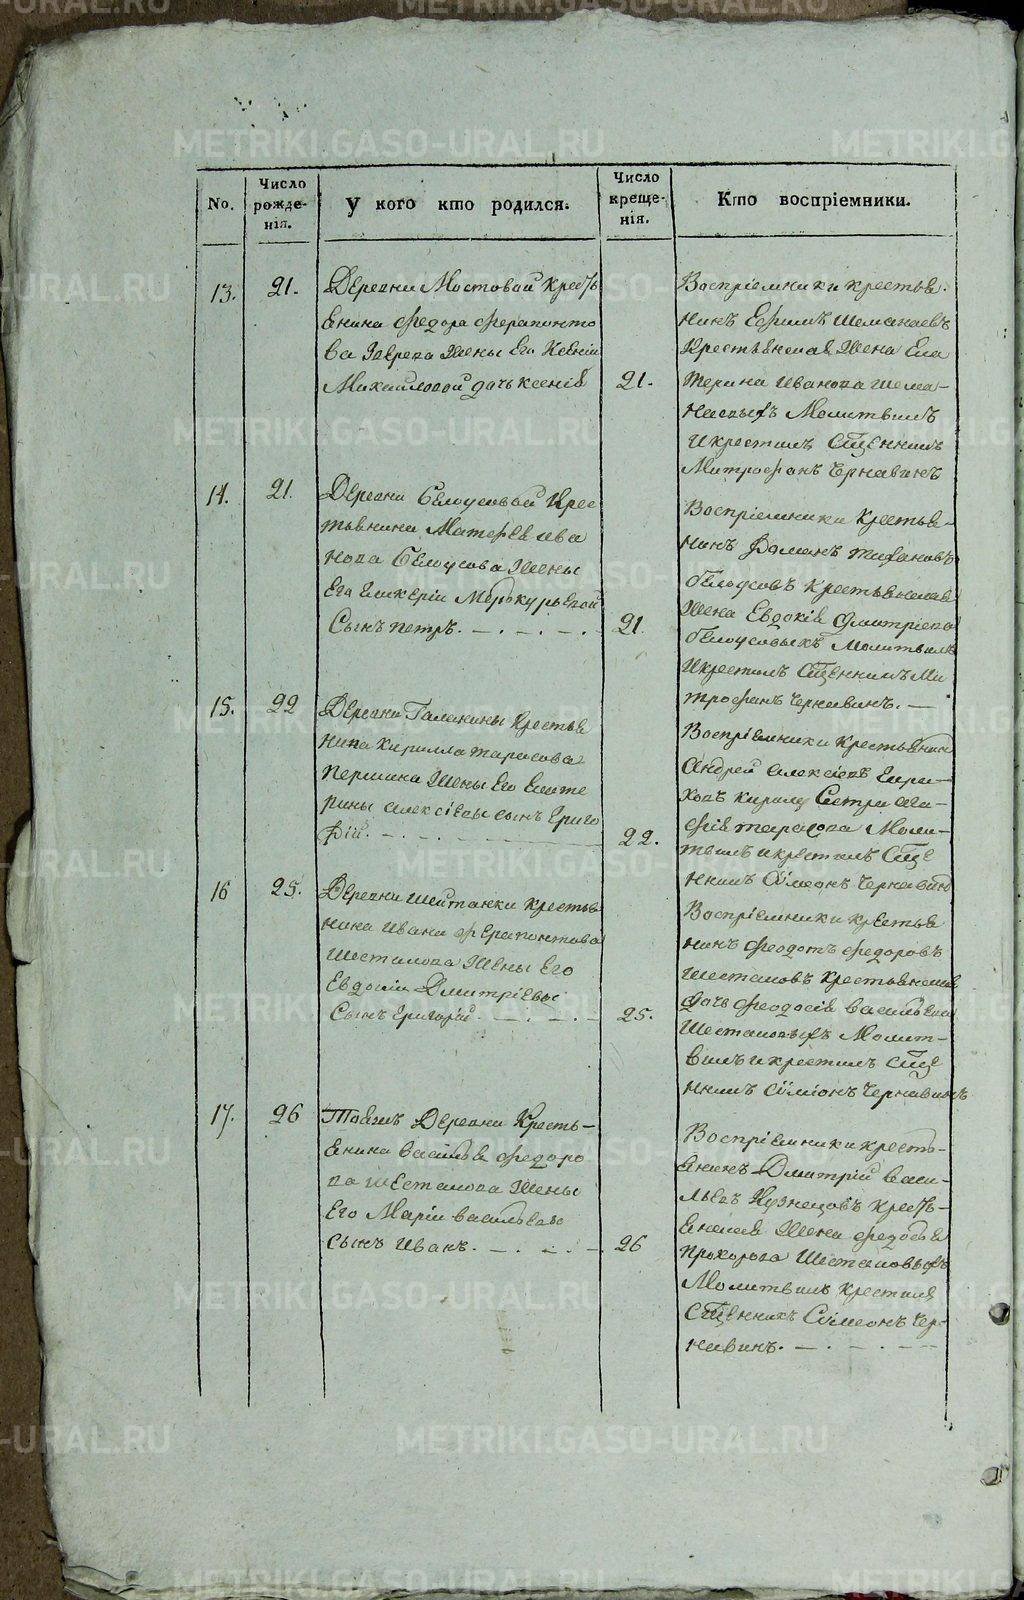 METRIKI.GASO-URAL.RU
No.
Число рожде-нія.
У кого кто родился.
Число креще-нія.
Кто воспріемники.
13.
21.
Деревни Мостовой кресть
янина Федора Ферапонто
ва Жены Его Ксеніи
Михайловой дочь Ксенія
21.
Воспріемники крестья-
нинъ Ефимъ Шеманаевъ
Крестьянская Жена Ека
терина Иванова Шема-
наевыхъ Молитвилъ
И крестилъ Сщенникъ
Митрофанъ Чернавинъ
14.
21.
Деревни Белоусовой Крес
тьянина Матфея Ива
нова Белоусова Жены
Его Гликеріи Меркурьевой
Сынъ Петръ.
21
Воспріемники Крестья-
нинъ
Белоусовъ Крестьянская
Жена Евдокія Дмитріева
Белоусовыхъ Молитвилъ
И крестилъ Сщенникъ Ми
трофанъ Чернавинъ.
15.
22
Деревни Галанины Крестья
нина Кирилла Тарасова
Першина Жены Его Екате
рины Алексіевы сынъ Григо
рій.
22.
Воспріемники Крестьянин
Андрей Алексіевъ
Сестра Ага-
фія Тарасова Моли-
твилъ и крестилъ Сще
нникъ Сімеонъ Чернавин
16
25.
Деревни Шайтанки Крестья
нина Ивана Ферапонтова
Шесталова Жены Его
Евдокіи Дмитріевы
Сынъ Григорій.
25.
Воспріемники крестья
нинъ Феодотъ Федоровъ
Шесталовъ Крестьянская
Дочь Феодосія Васильева
Шесталовыхъ Молит-
вилъ и крестилъ Сще
нникъ Сімеонъ Чернавинъ
17.
26
Тояжъ Деревни Кресть-
янина Василья Федоро
ва Шесталова Жены
Его Маріи Васильевы
сынъ Иванъ.
26
Воспріемники кресть-
янинъ Дмитрій Васи-
льевъ Кузнецовъ Кресть-
янская Жена Федосья
Прохорова Шесталовыхъ
Молитвилъ крестилъ
Сщенникъ Сімеонъ Чер-
навинъ.